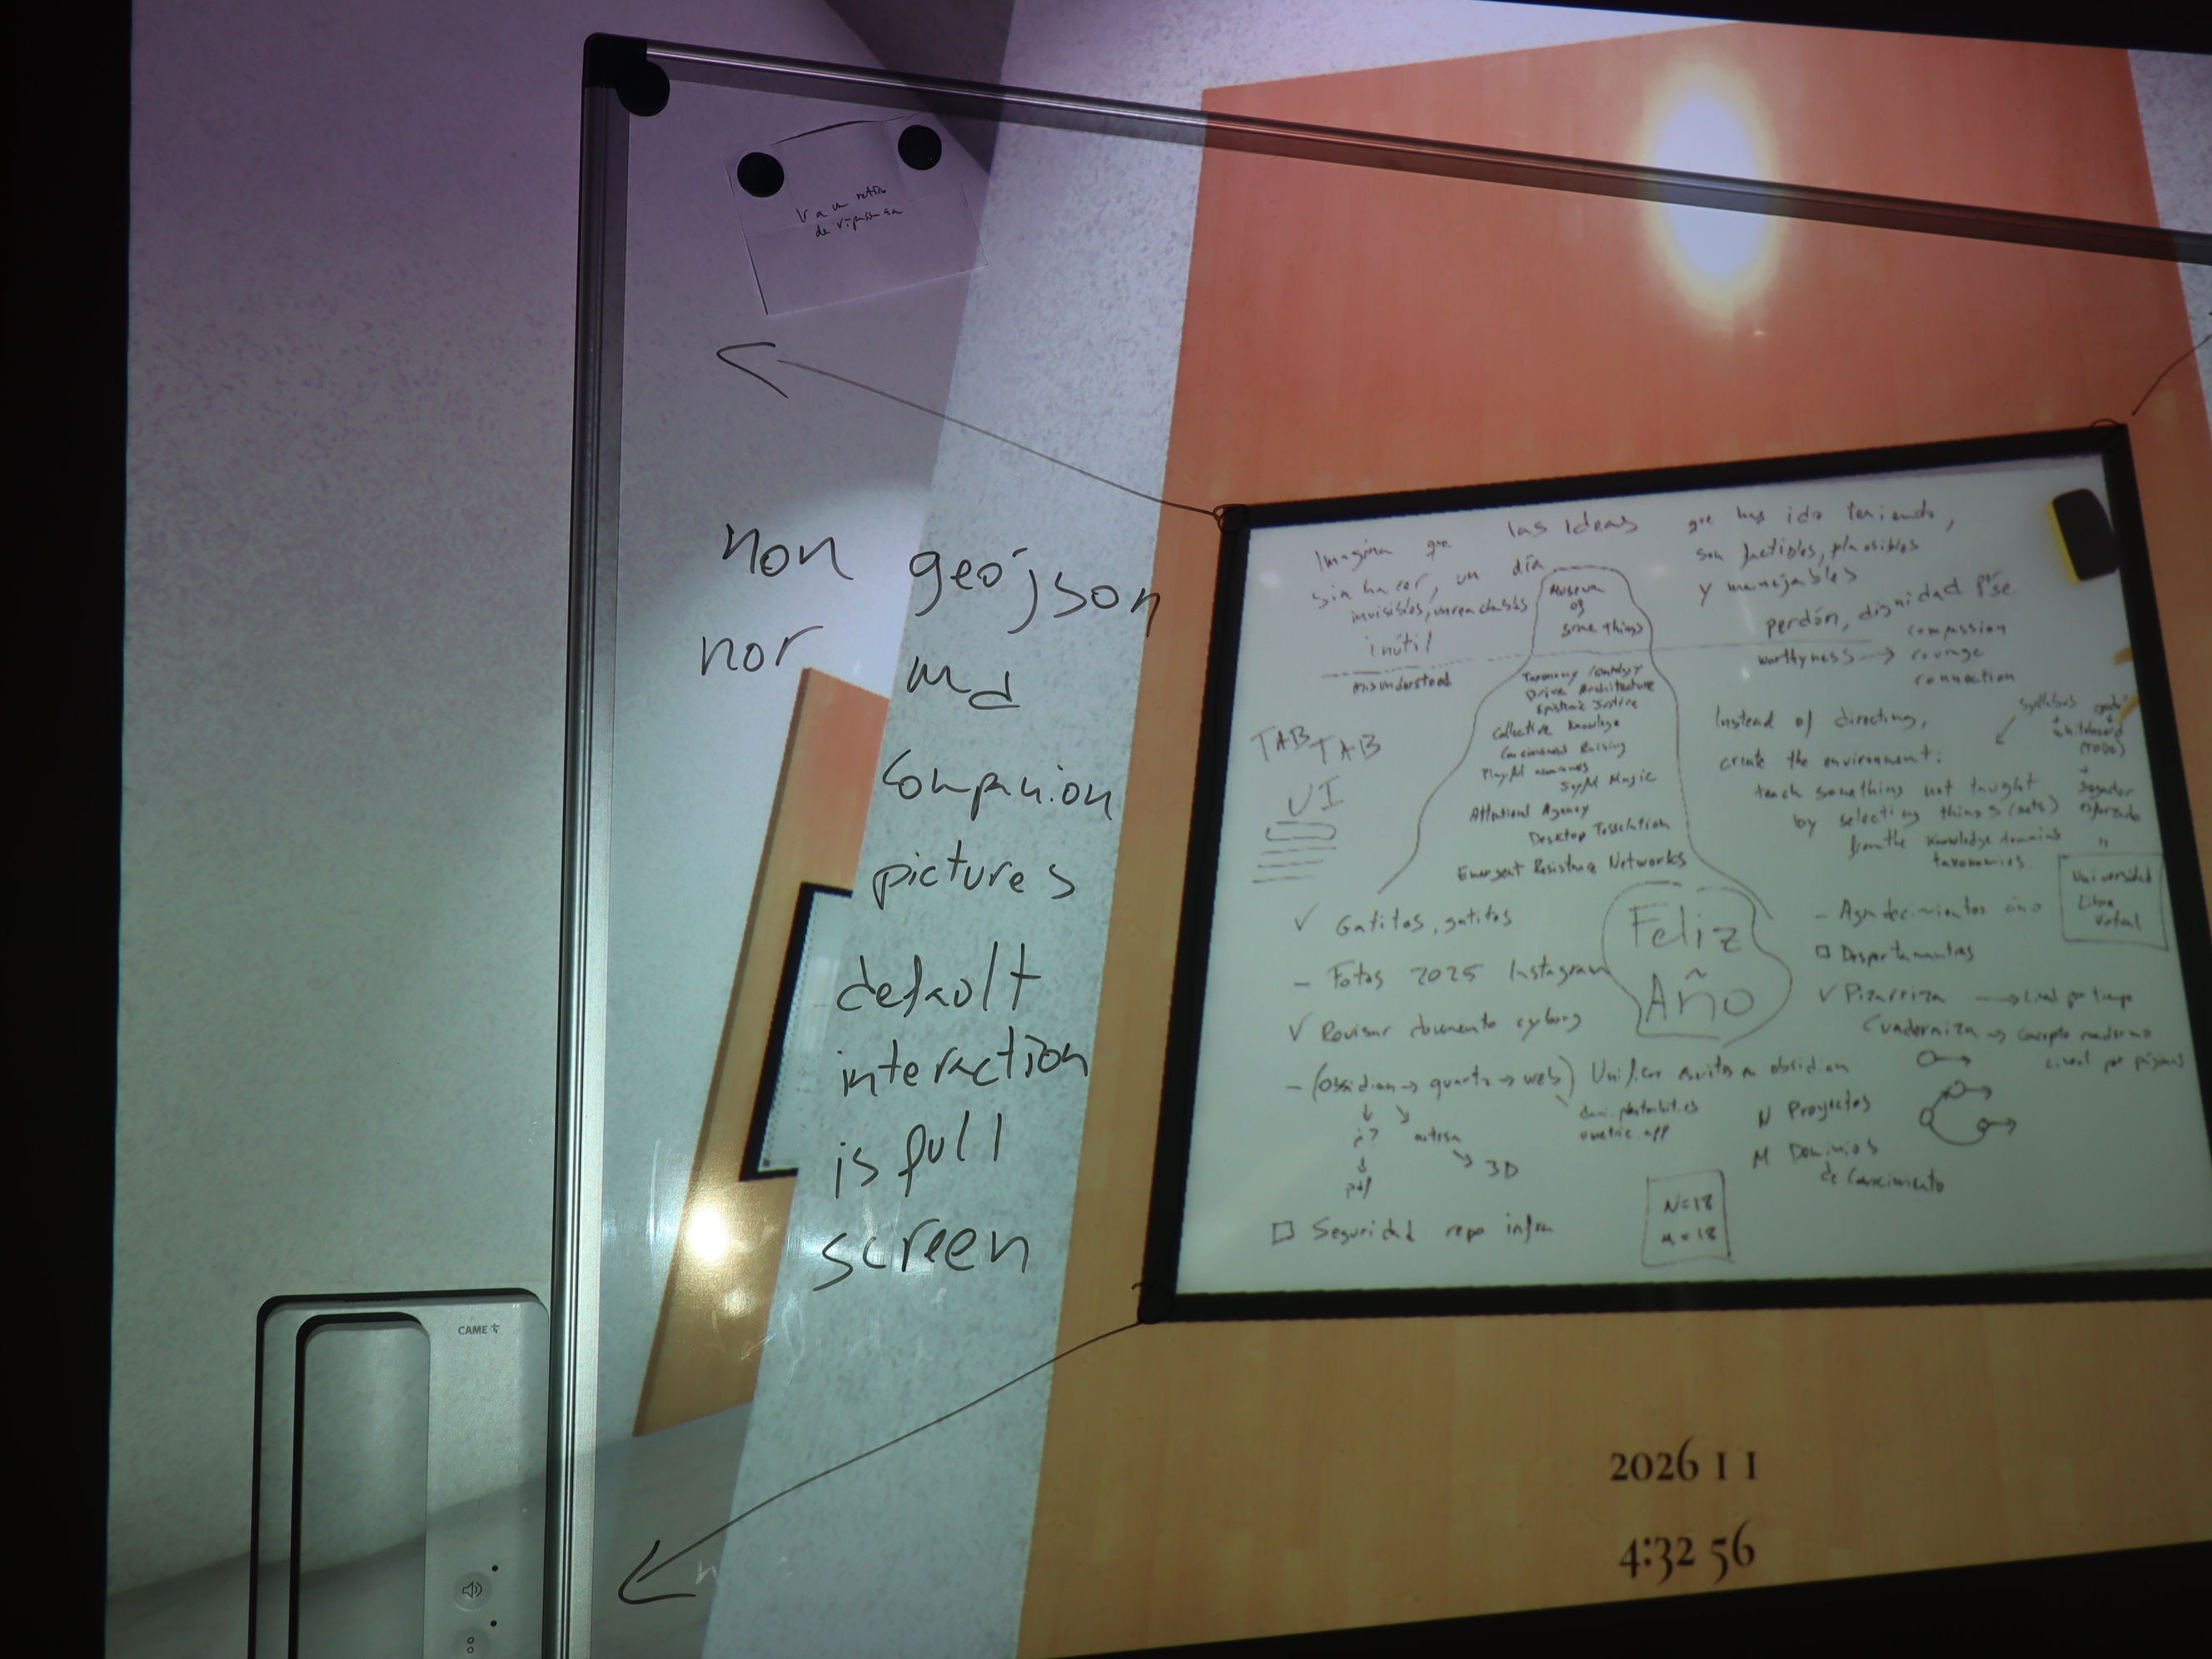 Va a un retiro
de vipassana
non geojson
nor md
Companion
pictures
default
interaction
is full
screen
CAME
Imagina que las ideas que has ido teniendo,
sin hacer, un día son factibles, plausibles
invisibles, unreachables y manejables
inútil
misunderstood
perdón, dignidad por se
worthyness → compassion
courage
connection
Museum
of
some things
Taxonomy
Driven Architecture
Epistemic Justice
Collective Knowledge
Conciousness Raising
Playful
Syfyl Magic
Attentional Agency
Desktop Tessellation
Emergent Resistance Networks
TAB TAB
UI
Instead of directing,
create the environment:
teach something not taught
by selecting things (sets)
from the knowledge domains
taxonomies.
syllabus
whiteboard
(TODO)
esforzado
Universidad
Libre
Virtual
Feliz
Año
✓ Gatitos, gatitos
- Fotos 2025 Instagram
✓ Revisar documento cyborg
- (Obsidian → quarto → web) Unificar escritos en obsidian
¿?
pdf
3D
☐ Seguridad repo infra
- Agradecimientos
☐ Despertamantras
✓ Pizarriza → Lineal por tiempo
Cuaderniza → concepto cuaderno
Lineal por páginas
N Proyectos
M Dominios
de Conocimiento
N=18
M=18
2026 1 1
4:32 56